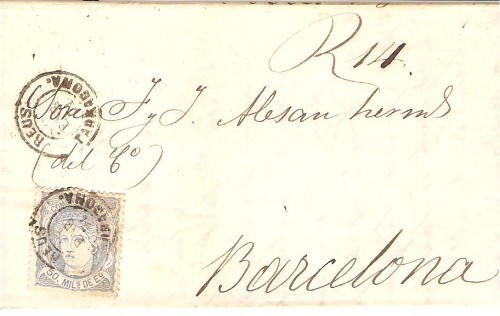 R 14.
REUS
TARRAGONA.
Sores F y J. Alesan herms
(del Co)
REUS
TARRAGONA.
50. MILS DE EO
Barcelona